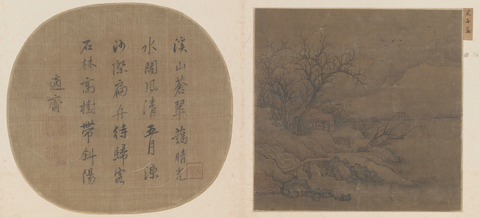 溪山蒼翠藹晴光
水閣風清五月凉
沙際扁舟待歸客
石林高樹帶斜陽
適齋